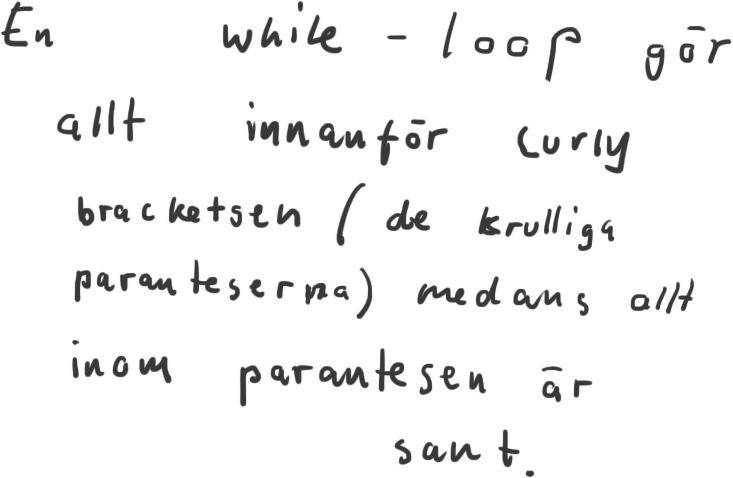 En while - loop gör
allt innanför curly
bracketsen (de krulliga
paranteserna) medans allt
inom parantesen är
sant.